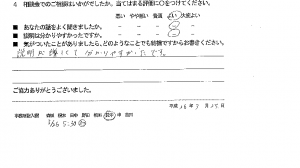 4 相談会でのご相談はいかがでしたか。当てはまる評価に〇をつけてください。
悪い やや悪い 普通 よい 大変よい
■ あなたの話をよく聞きましたか。
■ 説明は分かりやすかったですか。
■ 気がついたことがありましたら、どのようなことでも結構ですからお書きください。
説明が嬉しくて分かりやすかったです。
ご協力ありがとうございました。
平成 26年 7月 25日